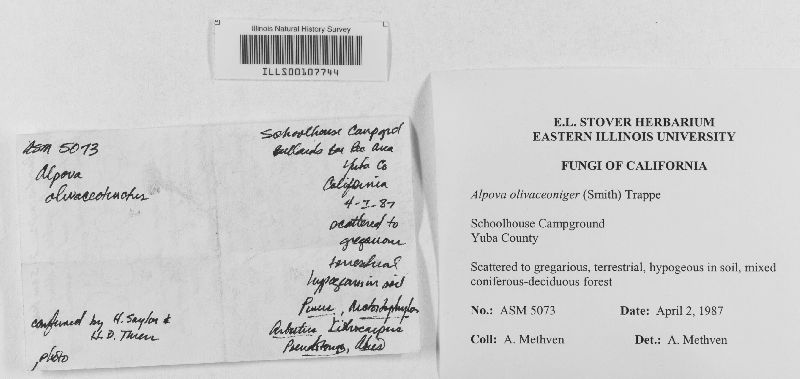 Illinois Natural History Survey
ILLS00107744
ASM 5073
Alpova
olivaceotinctus
confirmed by H. Saylor &
H. D. Thiers
photo
Schoolhouse Campgrd
Bullards Bar Rec Area
Yuba Co
California
4-2-87
scattered to
gregarious
terrestrial
hypogeous in soil
Pinus, Arctostaphylos
Arbutus Lithocarpus
Pseudotsuga, Abies
E.L. STOVER HERBARIUM
EASTERN ILLINOIS UNIVERSITY
FUNGI OF CALIFORNIA
Alpova olivaceoniger (Smith) Trappe
Schoolhouse Campground
Yuba County
Scattered to gregarious, terrestrial, hypogeous in soil, mixed
coniferous-deciduous forest
No.: ASM 5073 Date: April 2, 1987
Coll: A. Methven Det.: A. Methven